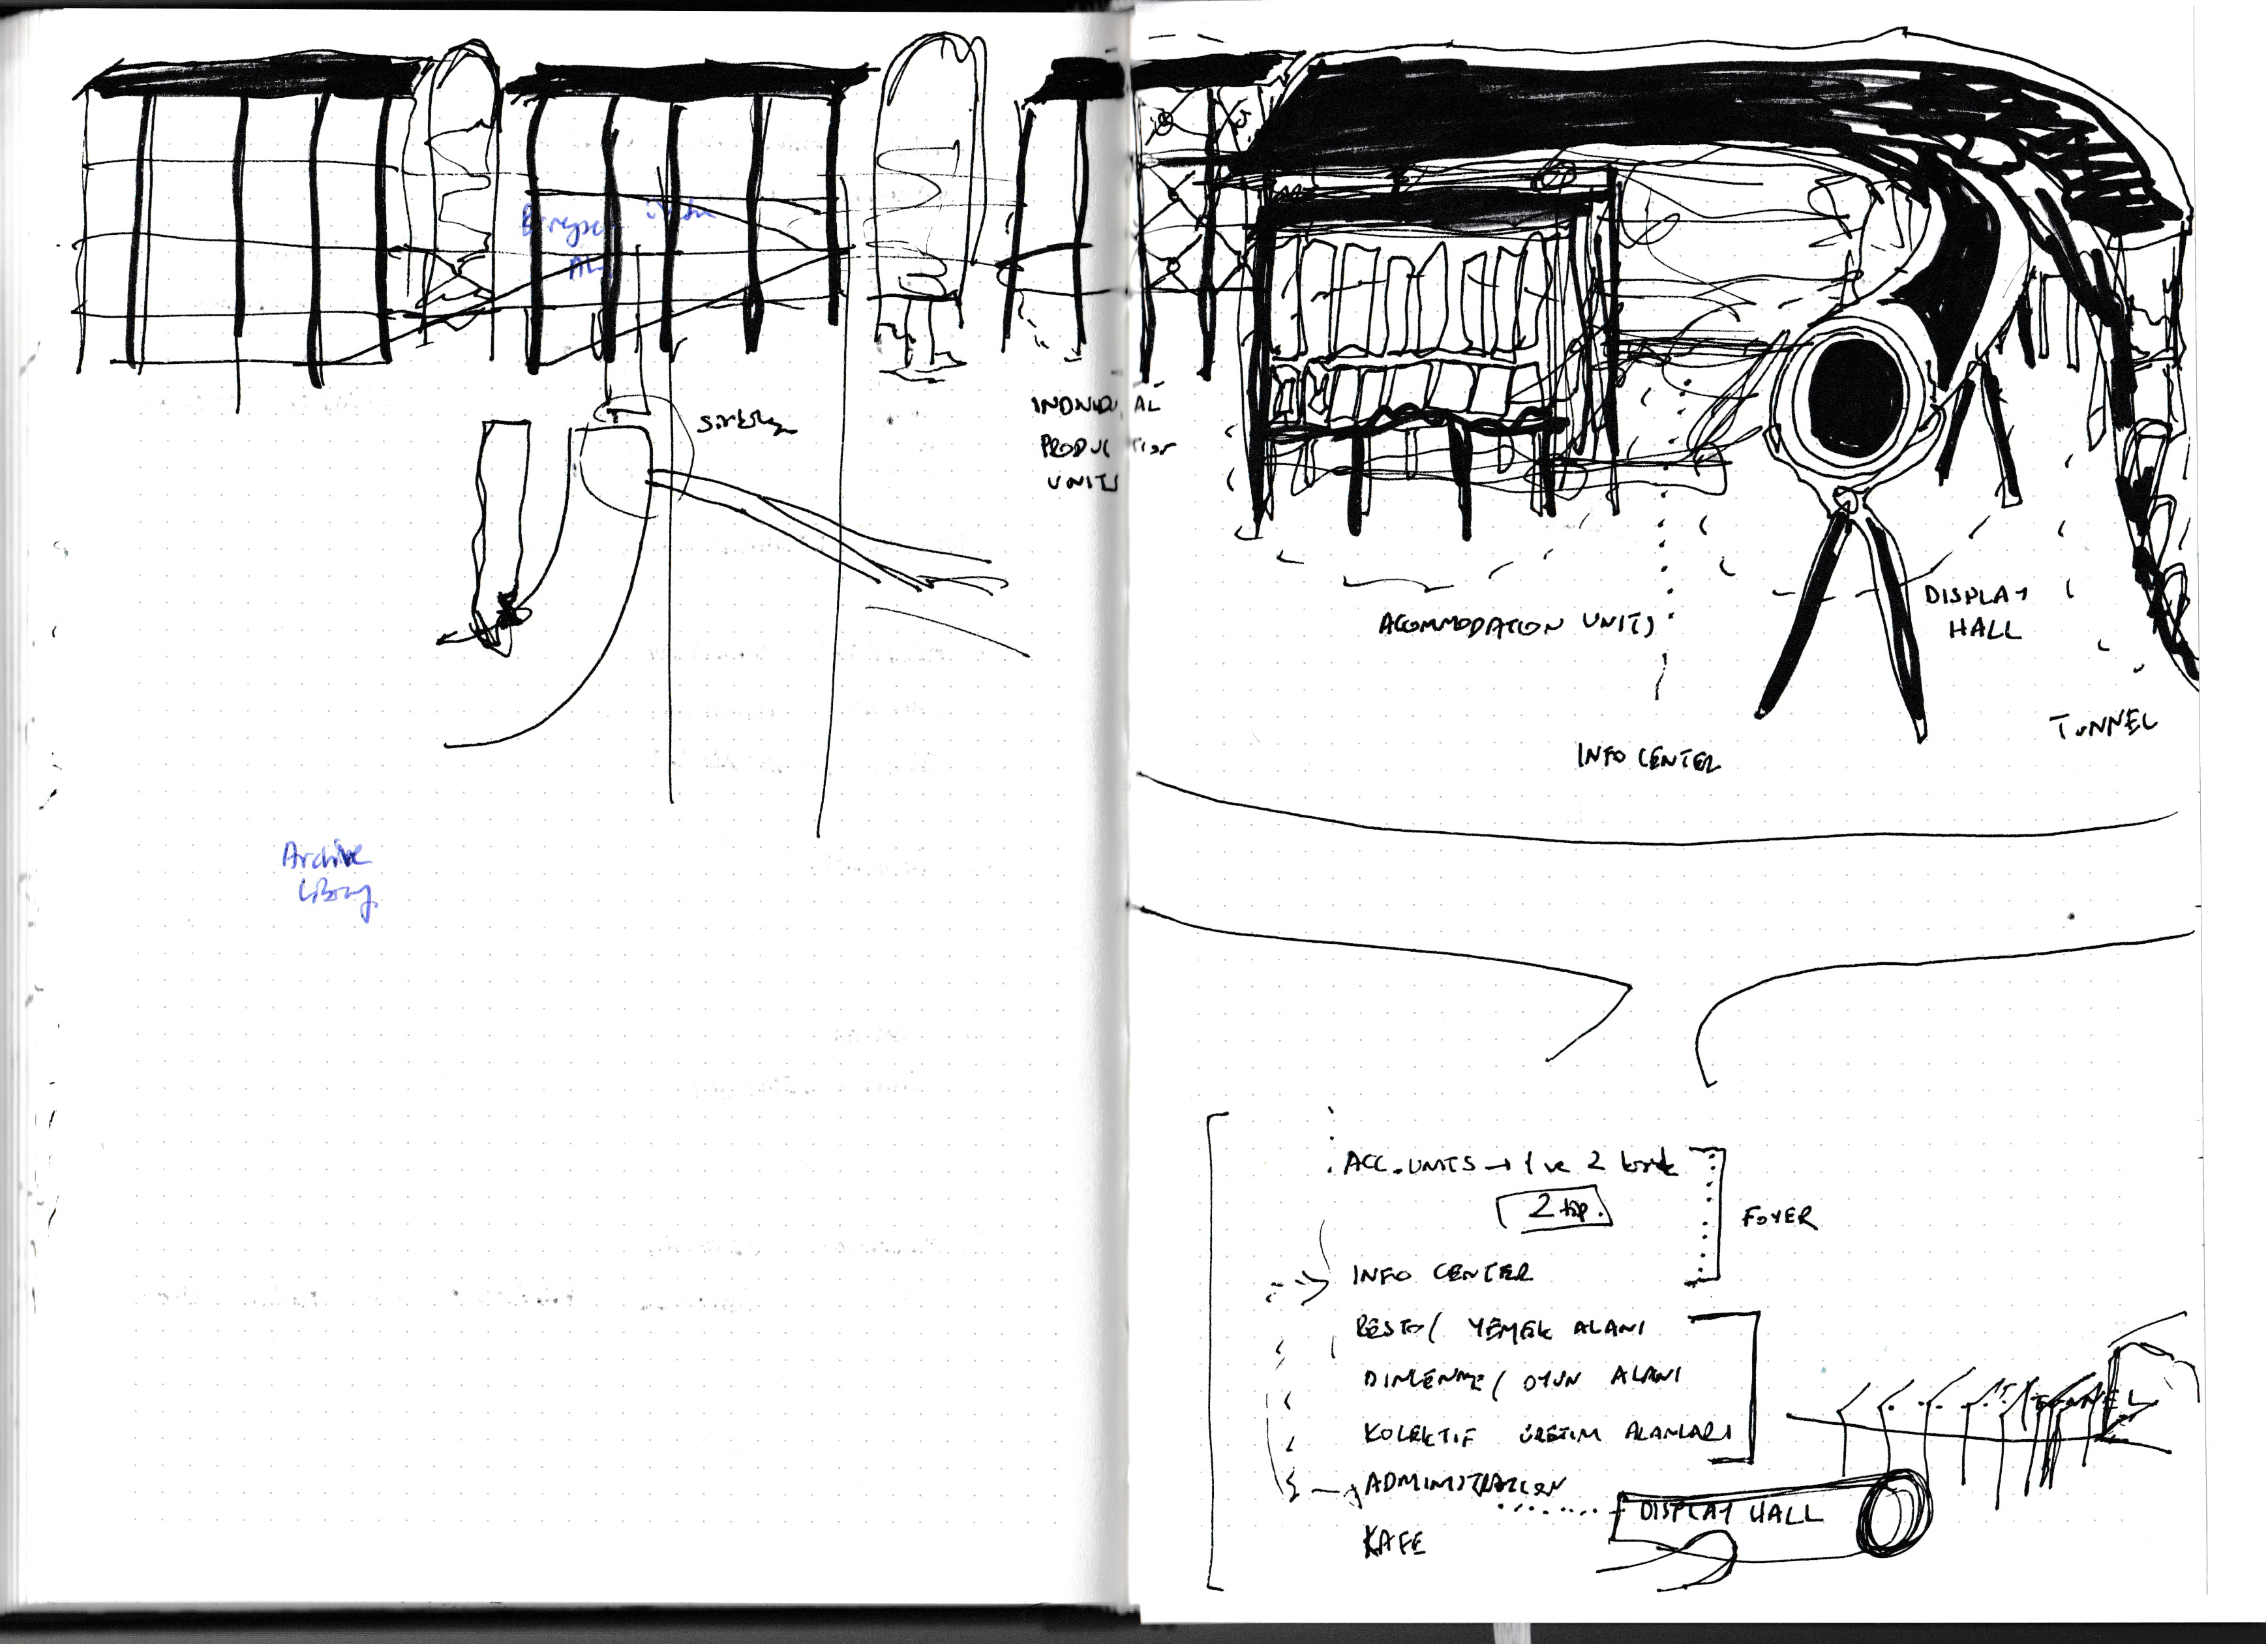 Archive
Library
INDIVIDUAL
PRODUCTION
UNITS
ACOMMODATION UNITS
DISPLAY
HALL
TUNNEL
INFO CENTER
ACC. UNITS → 1 ve 2
2 tip.
FOYER
INFO CENTER
RESTO / YEMEK ALANI
DINLENME / OYUN ALANI
KOLEKTIF ÜRETIM ALANLARI
TUNNEL
ADMINISTRATION
DISPLAY HALL
KAFE